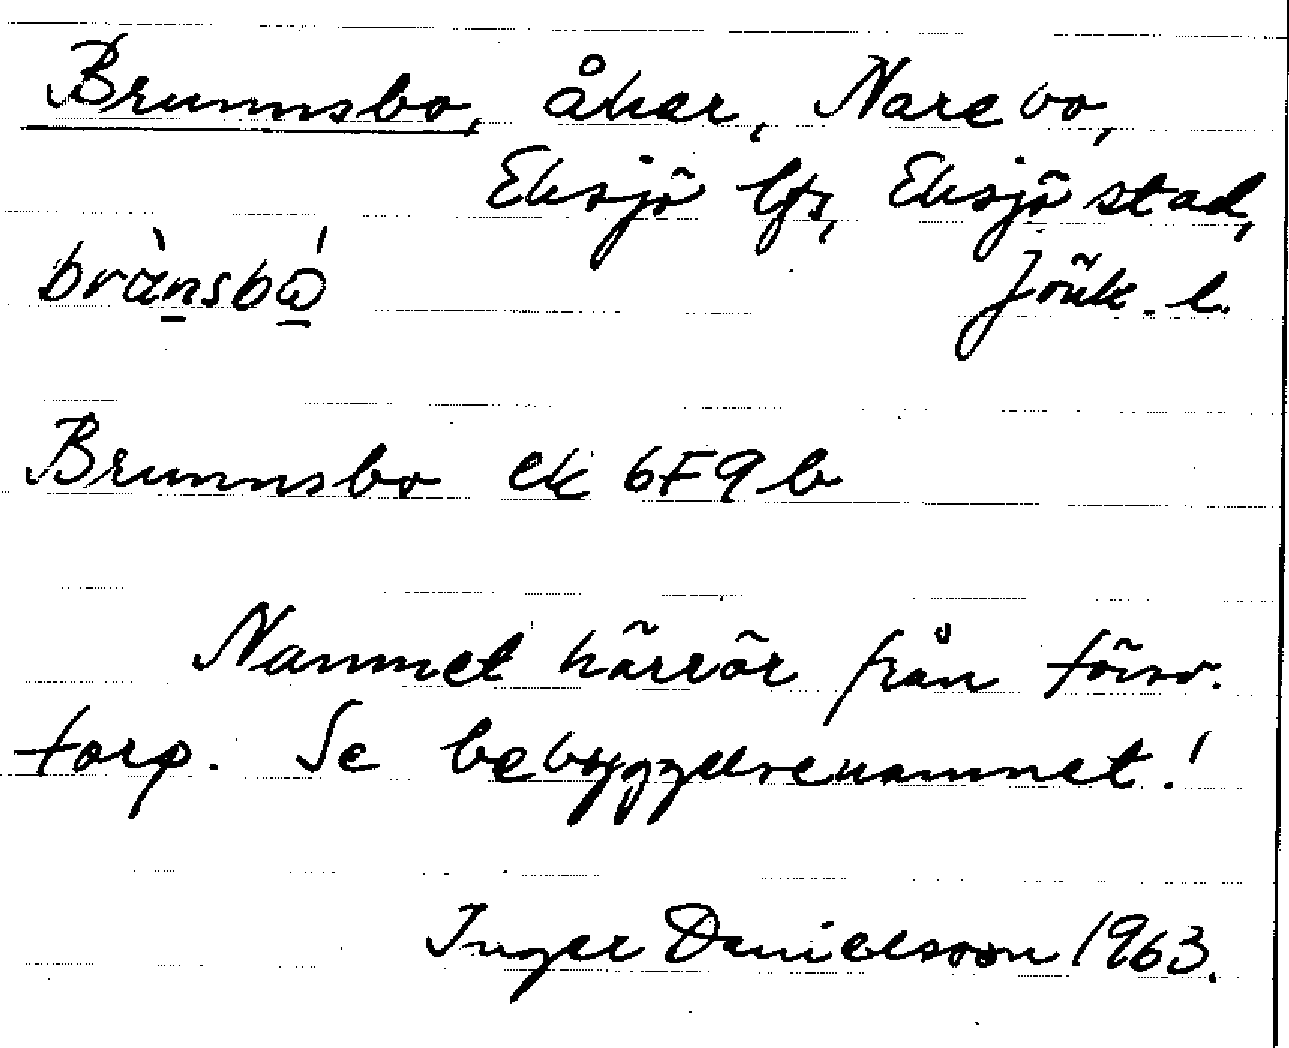 Brunnsbo, åker, Narebo,
Eksjö lfs, Eksjö stad,
brànsbó Jönk. l.
Brunnsbo ek 6F9b
Namnet härrör från försv.
torp. Se bebyggelsenamnet!
Inger Danielsson 1963.